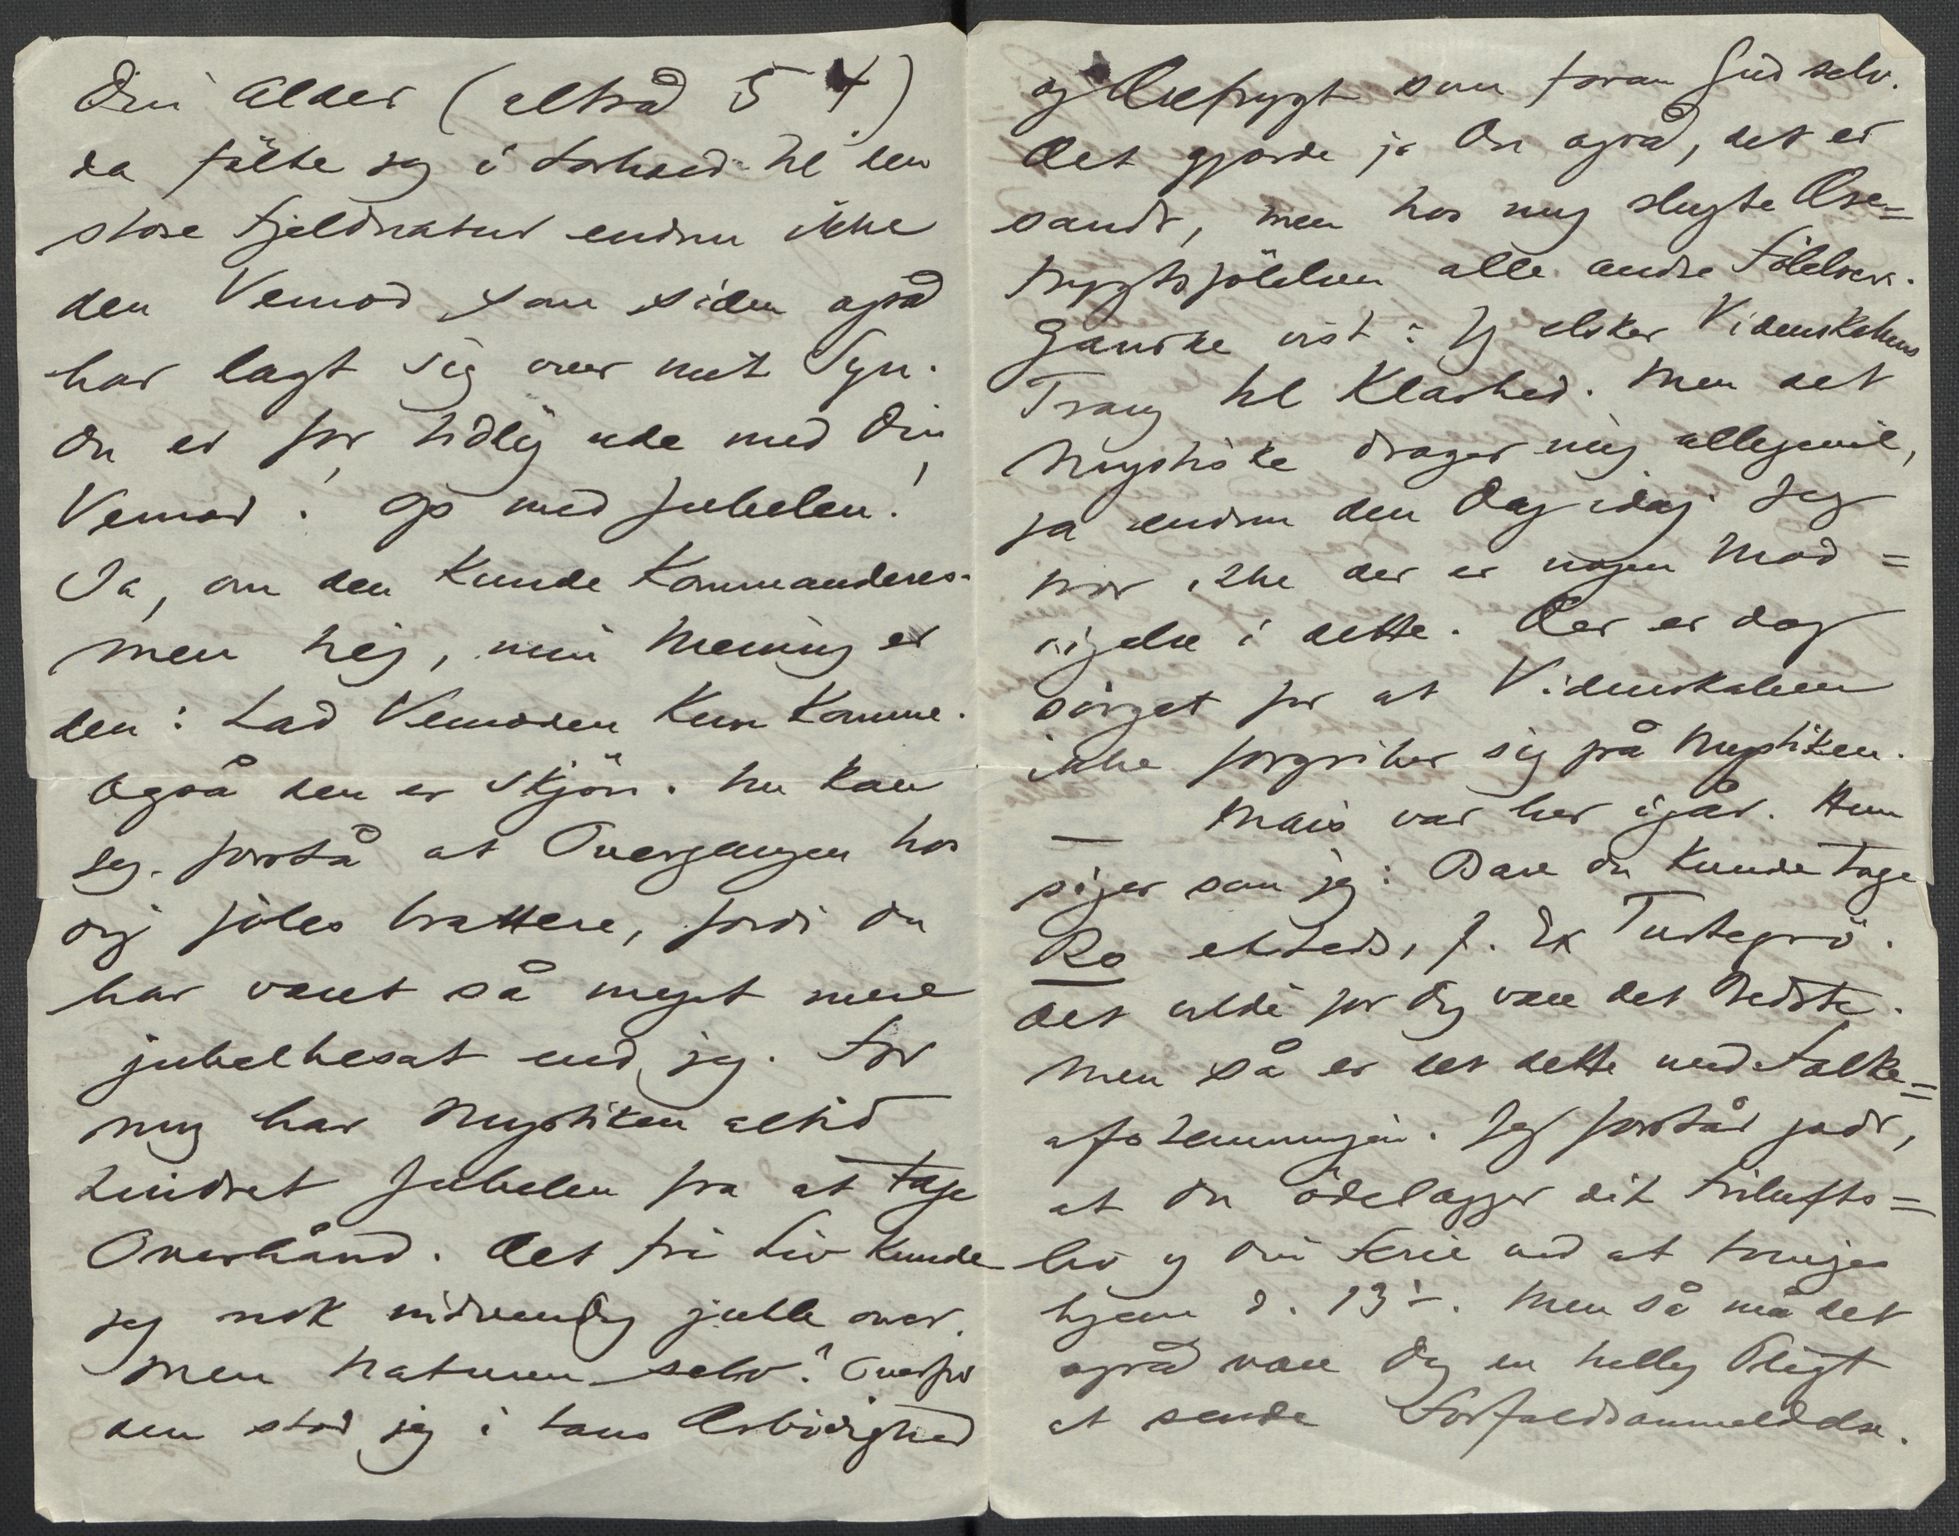 Din Alder (altså 54)
da følte jeg i Forhold til den
store Fjeldnatur endnu ikke
den Vemod som siden også
har lagt sig over mit Syn.
Du er for tidlig ude med Din
Vemod! Op med Jubelen!
Ja, om den kunde kommanderes.
Men nej, min Mening er
den: Lad Vemoden kun komme.
Også den er skjön. Nu kan
jeg forstå at Overgangen hos
dig föles brattere, fordi du
har været så meget mere
jubelbesat end jeg. For
mig har Mystiken altid
hindret Jubelen fra at tage
Overhånd. Det fri Liv kunde
jeg nok nødvendig juble over.
Men Naturen selv? Overfor
den stod jeg i taus Ærbødighed
og Ærefrygt som foran Gud selv.
Det gjorde jo Du også, det er
sandt, men hos mig slugte Ære=
frygtsfölelsen alle andre Fölelser.
Ganske vist: Jeg elsker Videnskabens
Trang til Klarhed. Men det
Mystiske drager mig allegevel,
ja endnu den Dag idag. Jeg
tror ikke der er nogen Mod=
sigelse i dette. Der er dog
sörget for at Videnskaben
ikke forgriber sig på Mystiken.
— Mais var her igår. Hun
siger som jeg: Bare du kunde tage
Ro etsteds, f. Ex Turtegrö.
Det vilde for Dig være det Bedste.
Men så er det dette med Folke=
afstemningen. Jeg forstår godt,
at Du ödelægger dit Frilufts=
liv og Din Ferie ved at tvinges
hjem d. 13de. Men så må det
også være Dig en hellig Pligt
at sende Forfaldsanmeldelse.